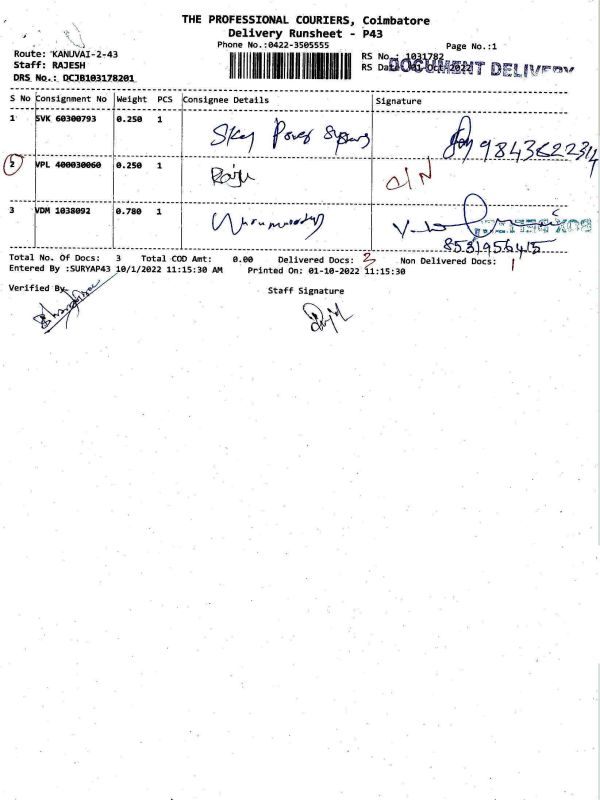 THE PROFESSIONAL COURIERS, Coimbatore
Delivery Runsheet - P43
Phone No.:0422-3505555
Page No.:1
Route: KANUVAI-2-43
RS No.: 1031782
Staff: RAJESH
RS Date: 01-Oct-2022
DOCUMENT DELIVERY
DRS No.: DCJB103178201
S No Consignment No Weight PCS Consignee Details Signature
1 SVK 60300793 0.250 1 Sky Power Systems 9843622314
2 VPL 400030060 0.250 1 Raju D/N
3 VDM 1038092 0.780 1
8531956415
Total No. Of Docs: 3 Total COD Amt: 0.00 Delivered Docs: 2 Non Delivered Docs: 1
Entered By :SURYAP43 10/1/2022 11:15:30 AM Printed On: 01-10-2022 11:15:30
Verified By Staff Signature